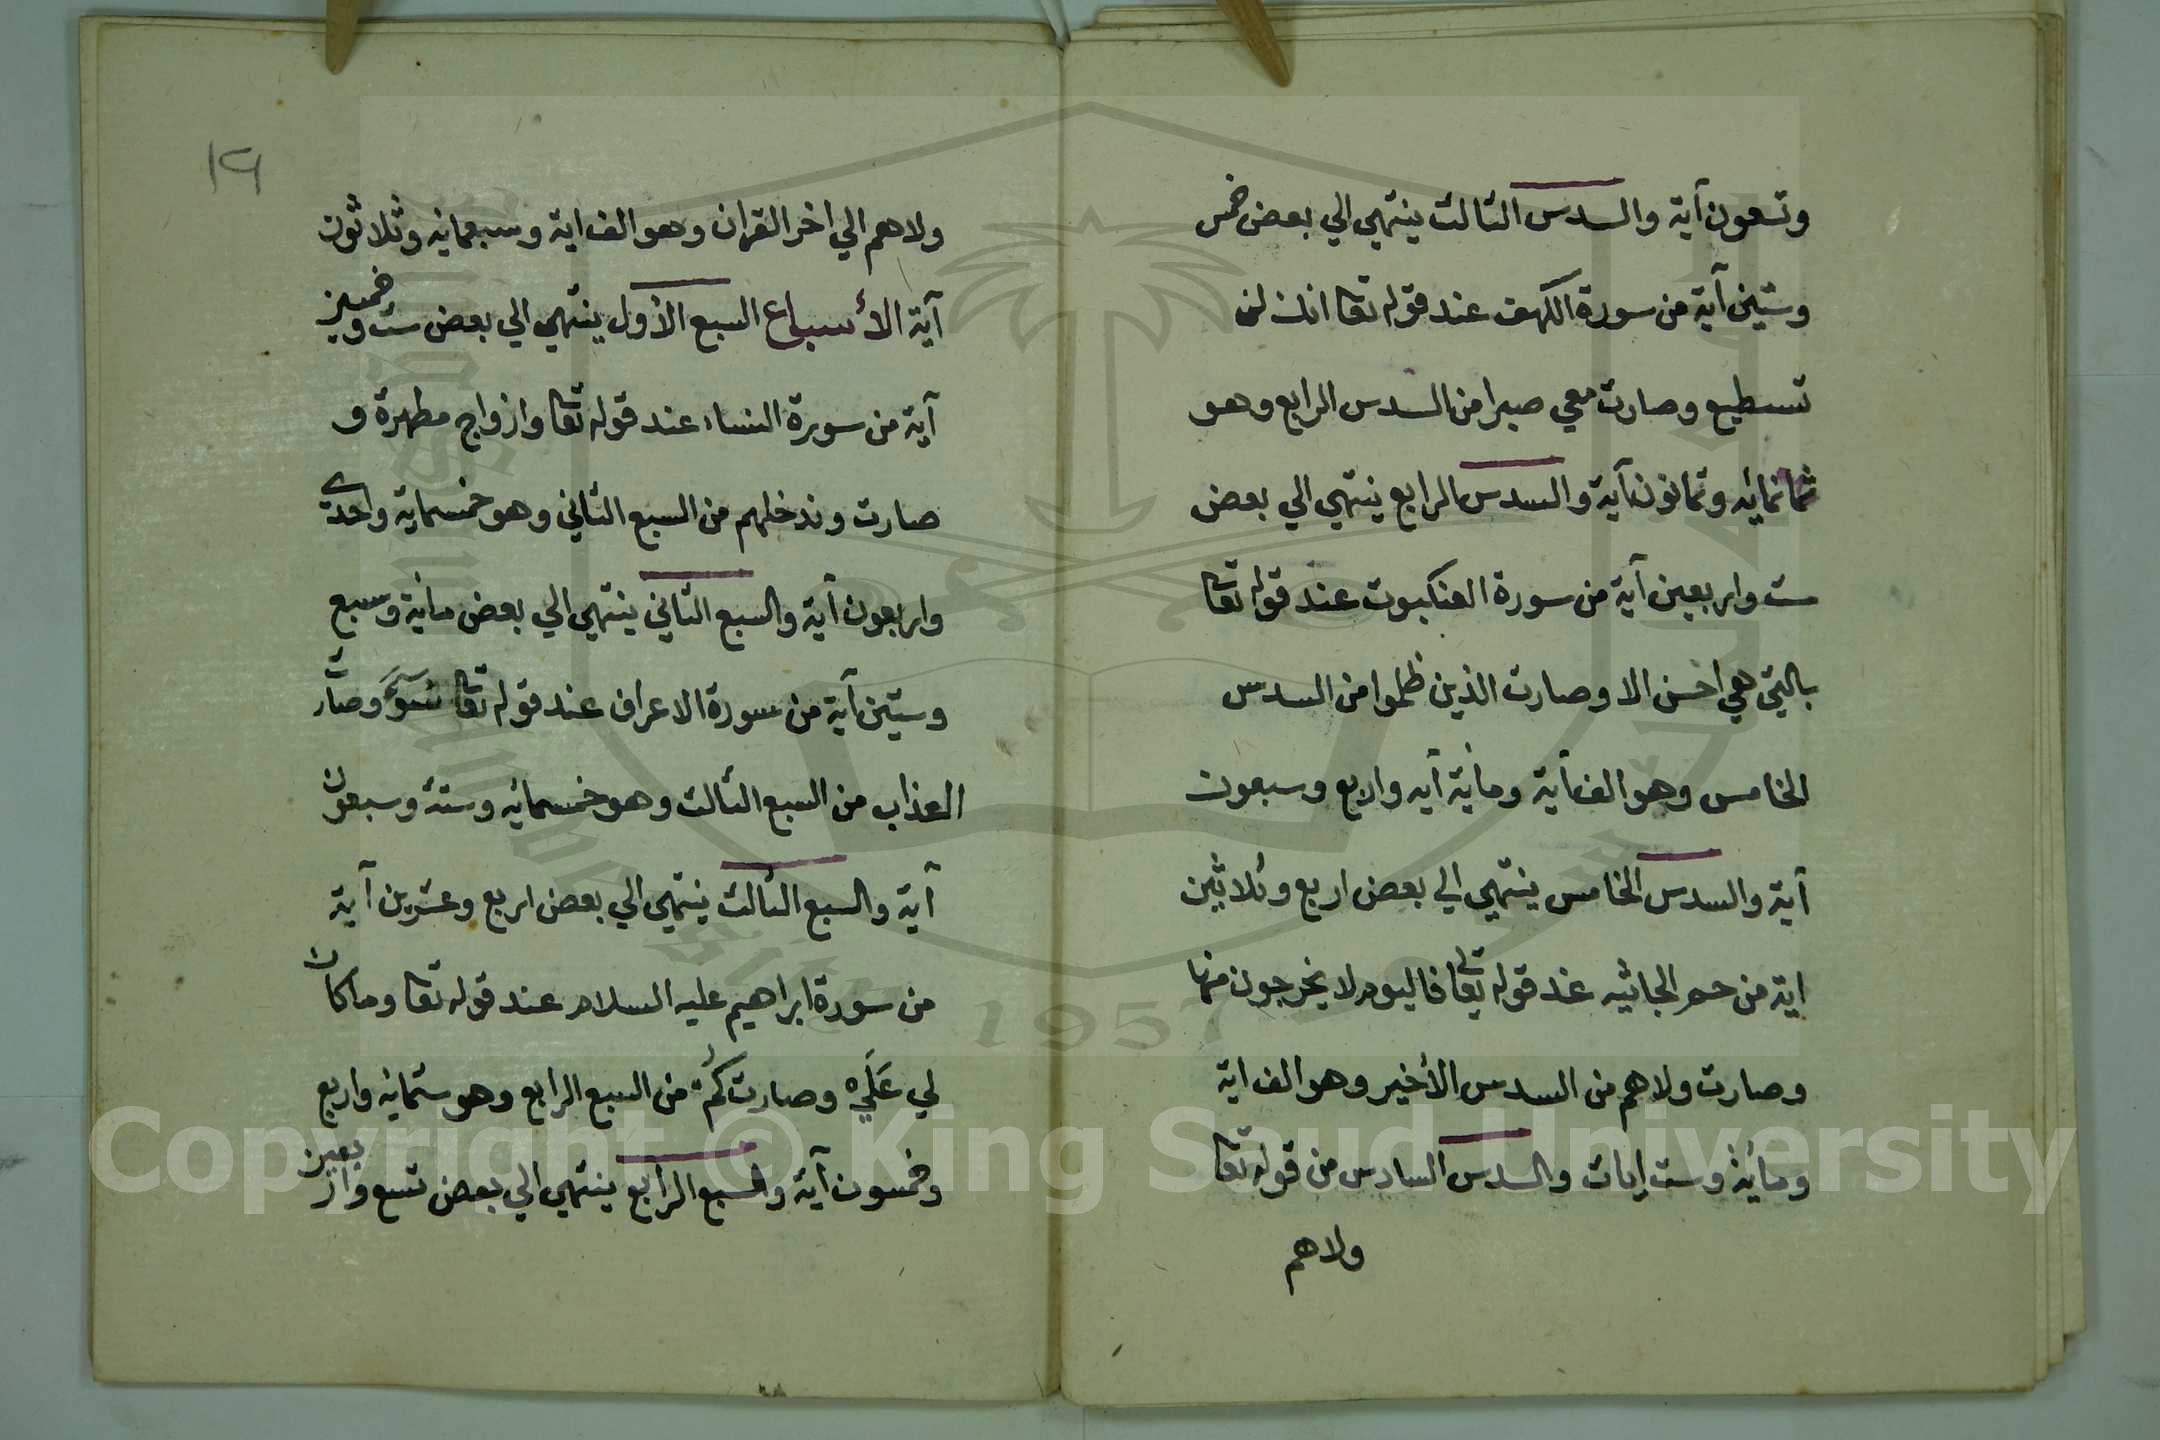 وتسعون آية والسدس الثالث ينتهي الي بعض خمس
وستين آية من سورة الكهف عند قوله تعا انك لن
تستطيع وصارت معي صبرا من السدس الرابع وهو
ثمانمائه وثمانون آية والسدس الرابع ينتهي الي بعض
ست واربعين آية من سورة العنكبوت عند قوله تعا
بالتي هي احسن الا وصارت الذين ظلموا من السدس
الخامس وهو الف آية ومائة آيه واربع وسبعون
آية والسدس الخامس ينتهي الي بعض اربع وثلاثين
اية من حم الجاثيه عند قوله تعالى فاليوم لا يخرجون منها
وصارت ولاهم من السدس الأخير وهو الف اية
ومائية وست ايات والسدس السادس من قوله تعا
ولاهم
١٩
ولاهم الي اخر القران وهو الف اية وسبعمائه وثلاثون
آية الأسباع السبع الأول ينتهي الي بعض ست وخمسين
آية من سورة النساء عند قوله تعا وازواج مطهرة و
صارت وندخلهم من السبع الثاني وهو خمسماية واحدى
واربعون آية والسبع الثاني ينتهي الي بعض مائة وسبع
وستين آية من سورة الاعراف عند قوله تعا سوء وصارت
العذاب من السبع الثالث وهو خمسمائه وستة وسبعون
آية والسبع الثالث ينتهي الي بعض اربع وعشرين آية
من سورة ابراهيم عليه السلام عند قوله تعا وما كان
لي عَلَي وصارت كُم من السبع الرابع وهو ستمائه واربع
وخمسون آية والسبع الرابع ينتهي الي بعض تسع واربعين
1957
Copyright © King Saud University